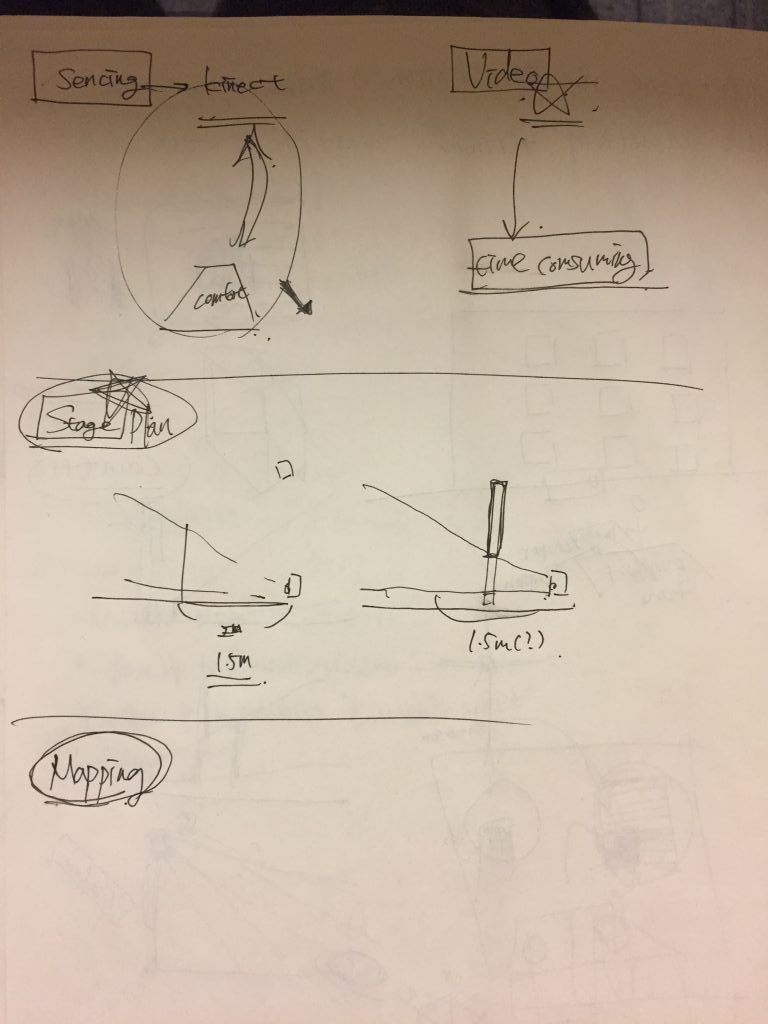 Sencing
kinect
Video
time consuming
Stage Plan
1.5m
1.5m(?)
Mapping